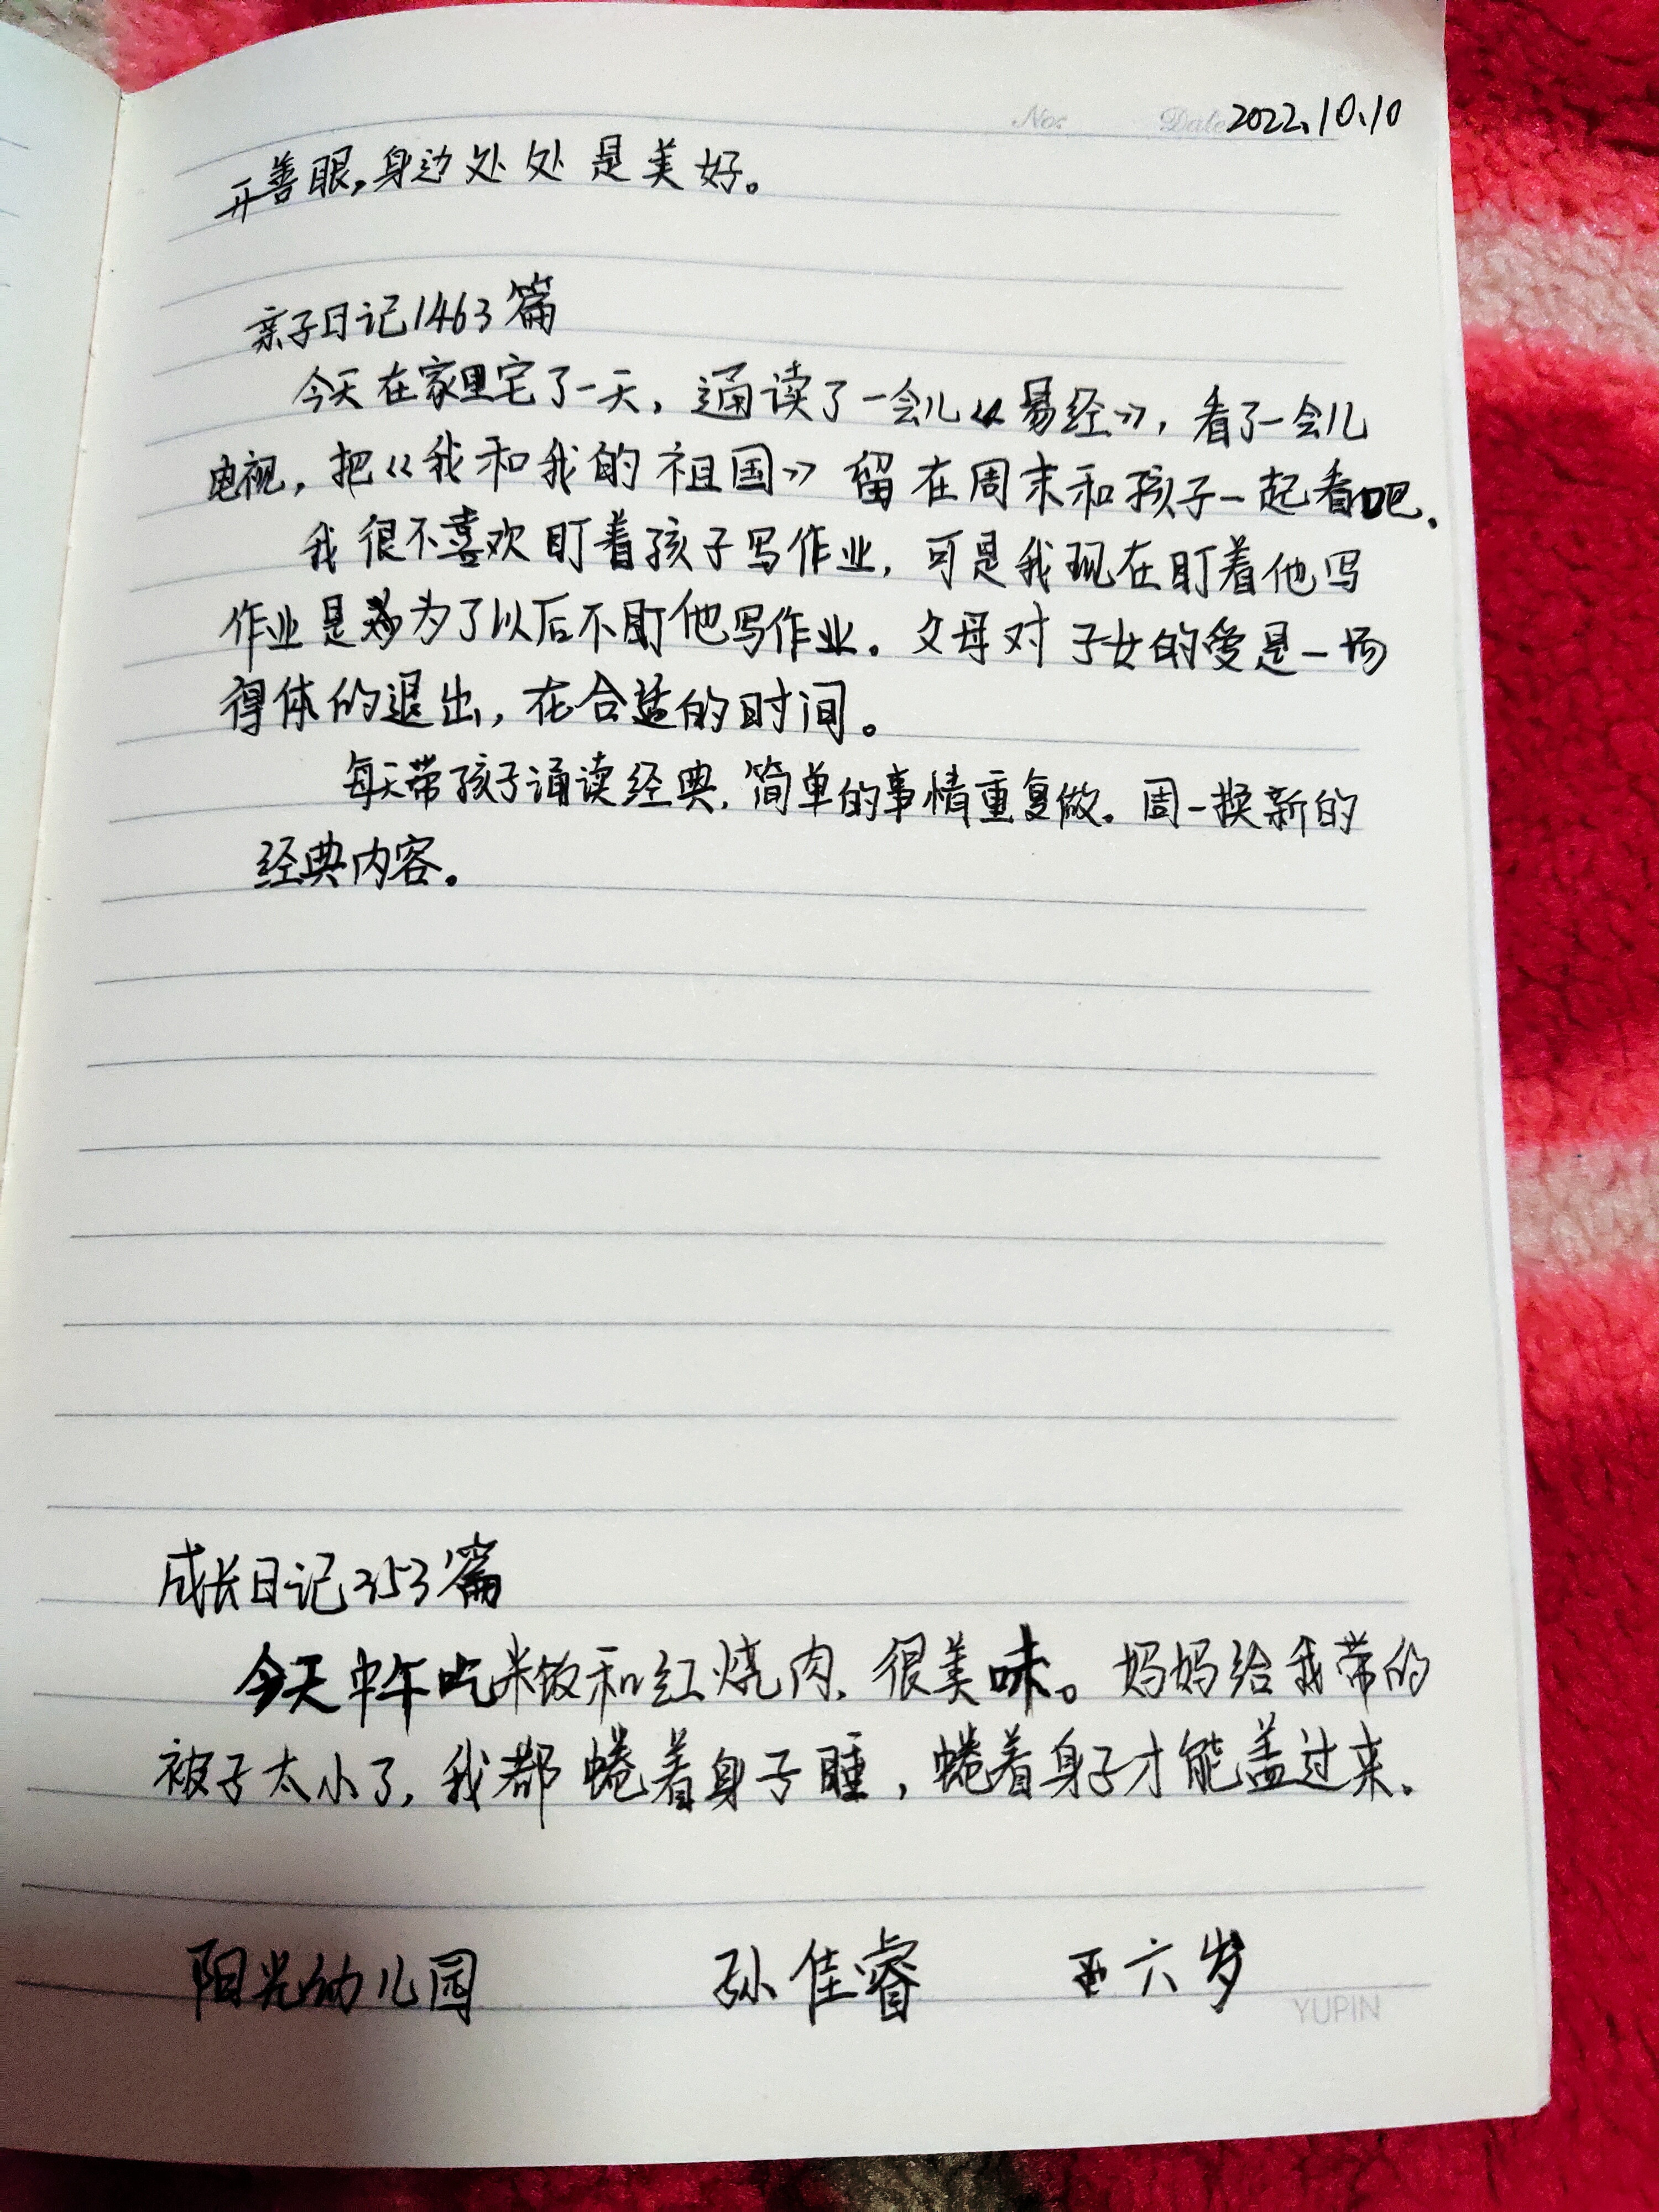 No: Date 2022.10.10
开善眼,身边处处是美好。
亲子日记1463篇
今天在家里宅了一天,通读了一会儿《易经》,看了一会儿
电视,把《我和我的祖国》留在周末和孩子一起看吧.
我很不喜欢盯着孩子写作业,可是我现在盯着他写
作业是为了以后不盯他写作业。父母对子女的爱是一场
得体的退出,在合适的时间。
每天带孩子诵读经典,简单的事情重复做。周一换新的
经典内容。
成长日记353篇
今天中午吃米饭和红烧肉,很美味。妈妈给我带的
被子太小了,我都蜷着身子睡,蜷着身子才能盖过来.
阳光幼儿园 孙佳睿 六岁
YUPIN